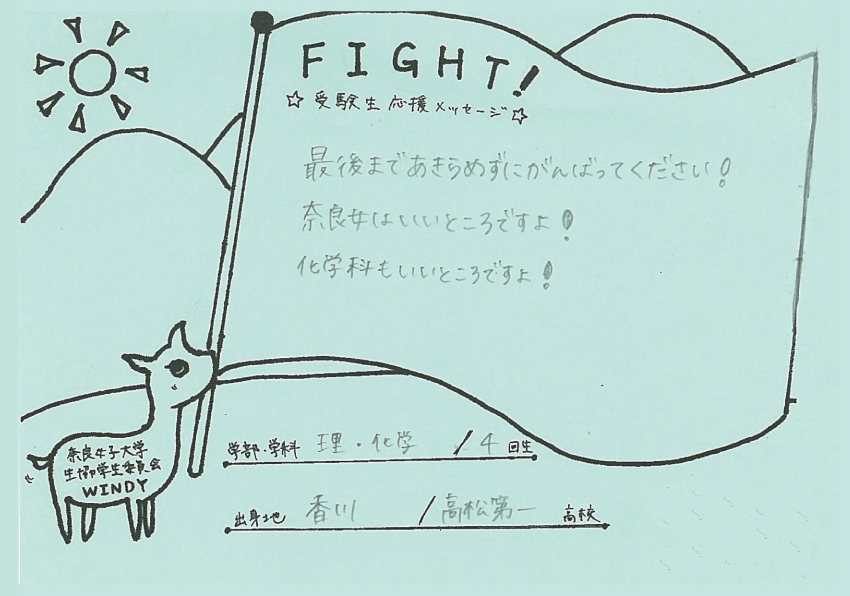 FIGHT!
☆受験生応援メッセージ☆
最後まであきらめずにがんばってください!
奈良女はいいところですよ!
化学科もいいところですよ!
学部・学科 理・化学 / 4 回生
出身地 香川 / 高松第一 高校
奈良女子大学
生協学生委員会
WINDY